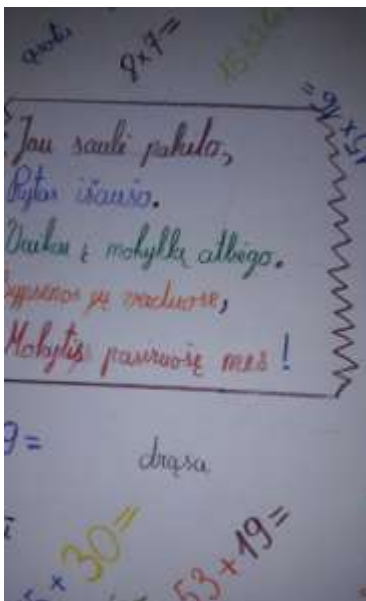 8x7=
15x16=
Jau saulė pakilo,
Rytas išaušo.
Vaikai į mokyklą atbėgo.
Šypsenos jų veiduose,
Mokytis pasiruošę mes!
9=
drąsa
x 30=
53+19=